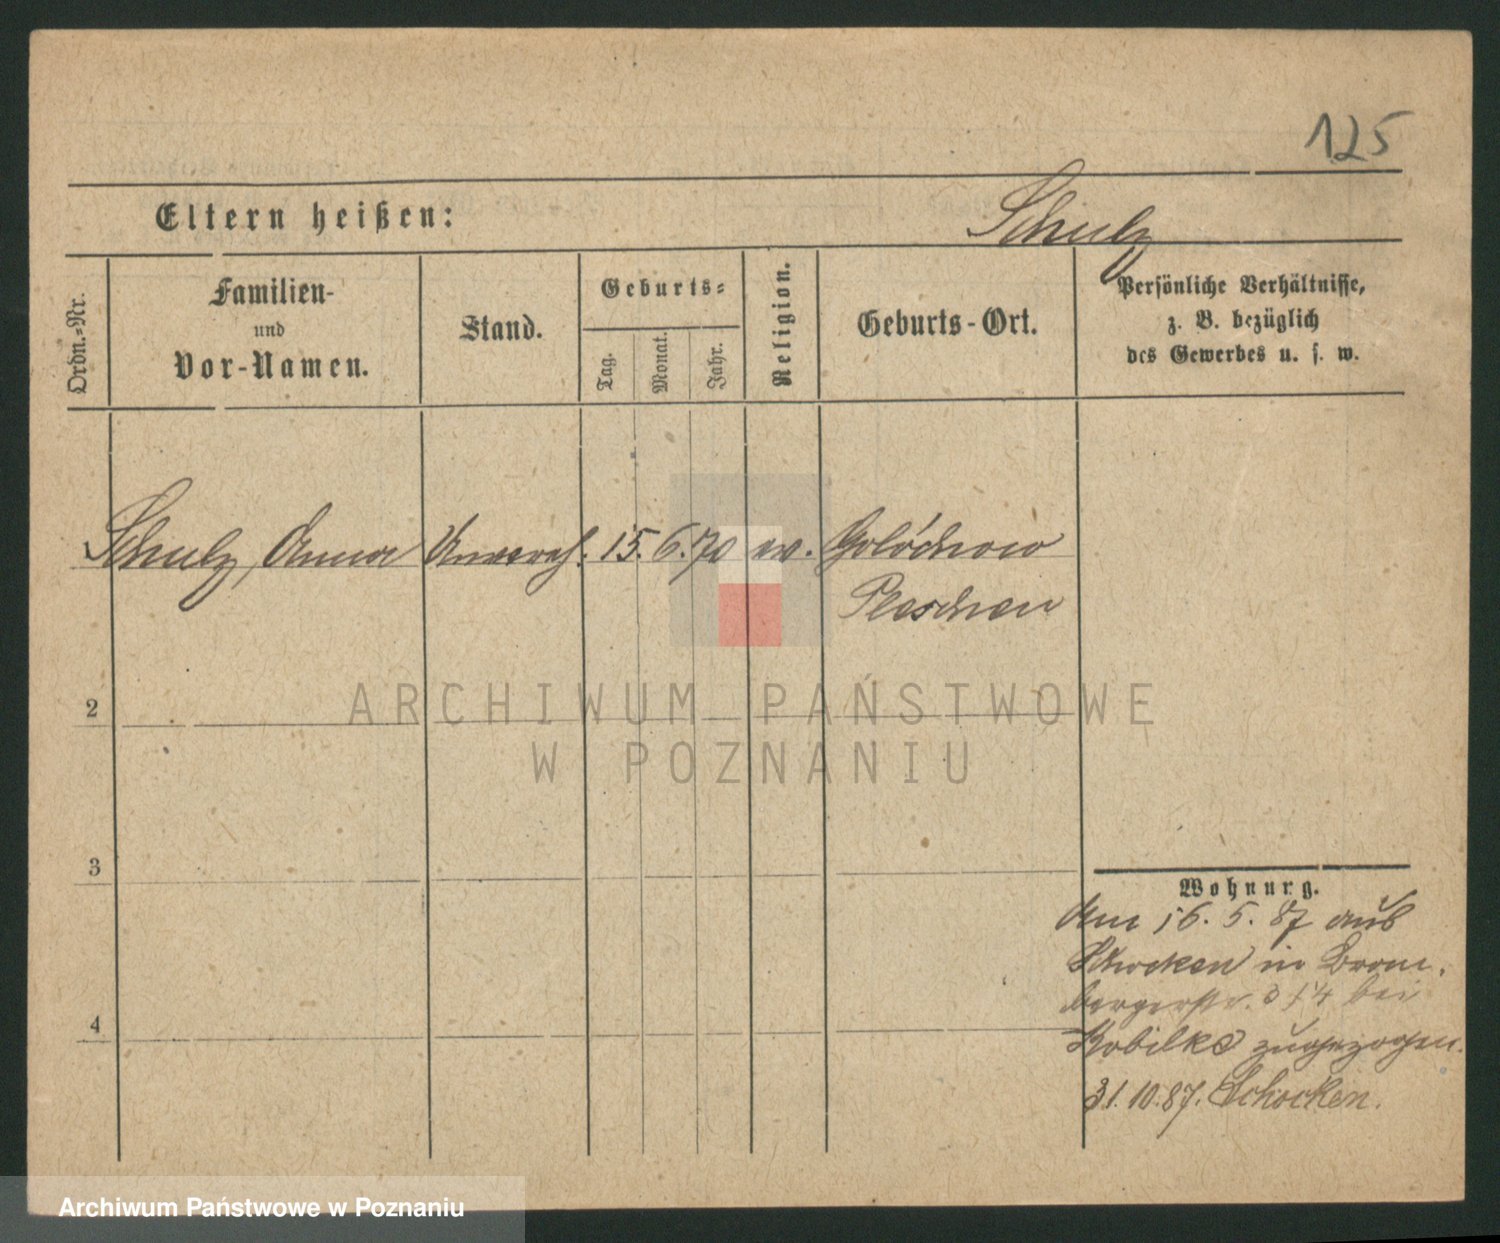 125
Eltern heißen:
Schulz
Ordn.=Nr.
Familien-
und
Vor-Namen.
Stand.
Geburts=
Tag.
Monat.
Jahr.
Religion.
Geburts-Ort.
Persönliche Verhältnisse,
z. B. bezüglich
des Gewerbes u. s. w.
1 Schulz, Anna Unvereh. 15. 6. 70 ev. Golóchow
Pleschen
2
ARCHIWUM PAŃSTWOWE
W POZNANIU
3
Wohnung.
Am 16. 5. 87 aus
Schocken in Brom-
bergerstr. 3/4 bei
4
Kobilke zugezogen.
31. 10. 87. Schocken.
Archiwum Państwowe w Poznaniu